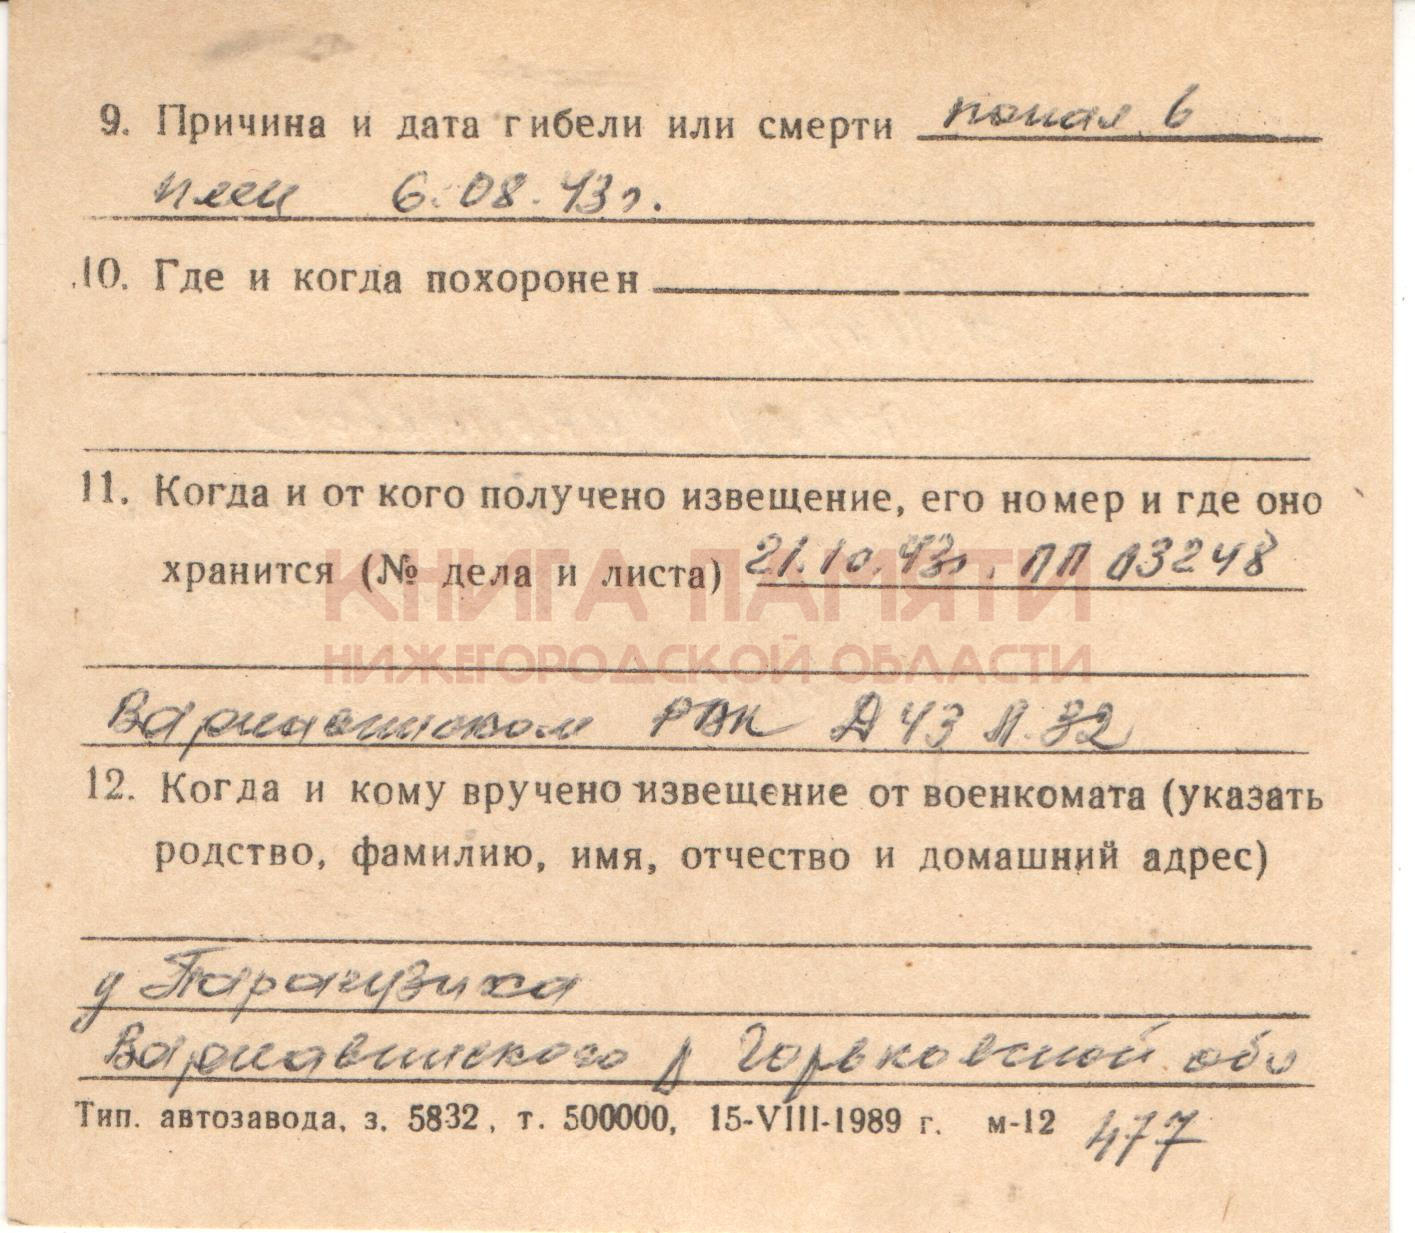 9. Причина и дата гибели или смерти попал в
плен 6.08.43г.
10. Где и когда похоронен
11. Когда и от кого получено извещение, его номер и где оно
хранится (№ дела и листа) 21.10.43г. ПП 03248
КНИГА ПАМЯТИ
НИЖЕГОРОДСКОЙ ОБЛАСТИ
Варнавинском РВК Д 43 Л. 32
12. Когда и кому вручено извещение от военкомата (указать
родство, фамилию, имя, отчество и домашний адрес)
д
Варнавинского р Горьковской обл
Тип. автозавода, з. 5832, т. 500000, 15-VIII-1989 г. м-12 477